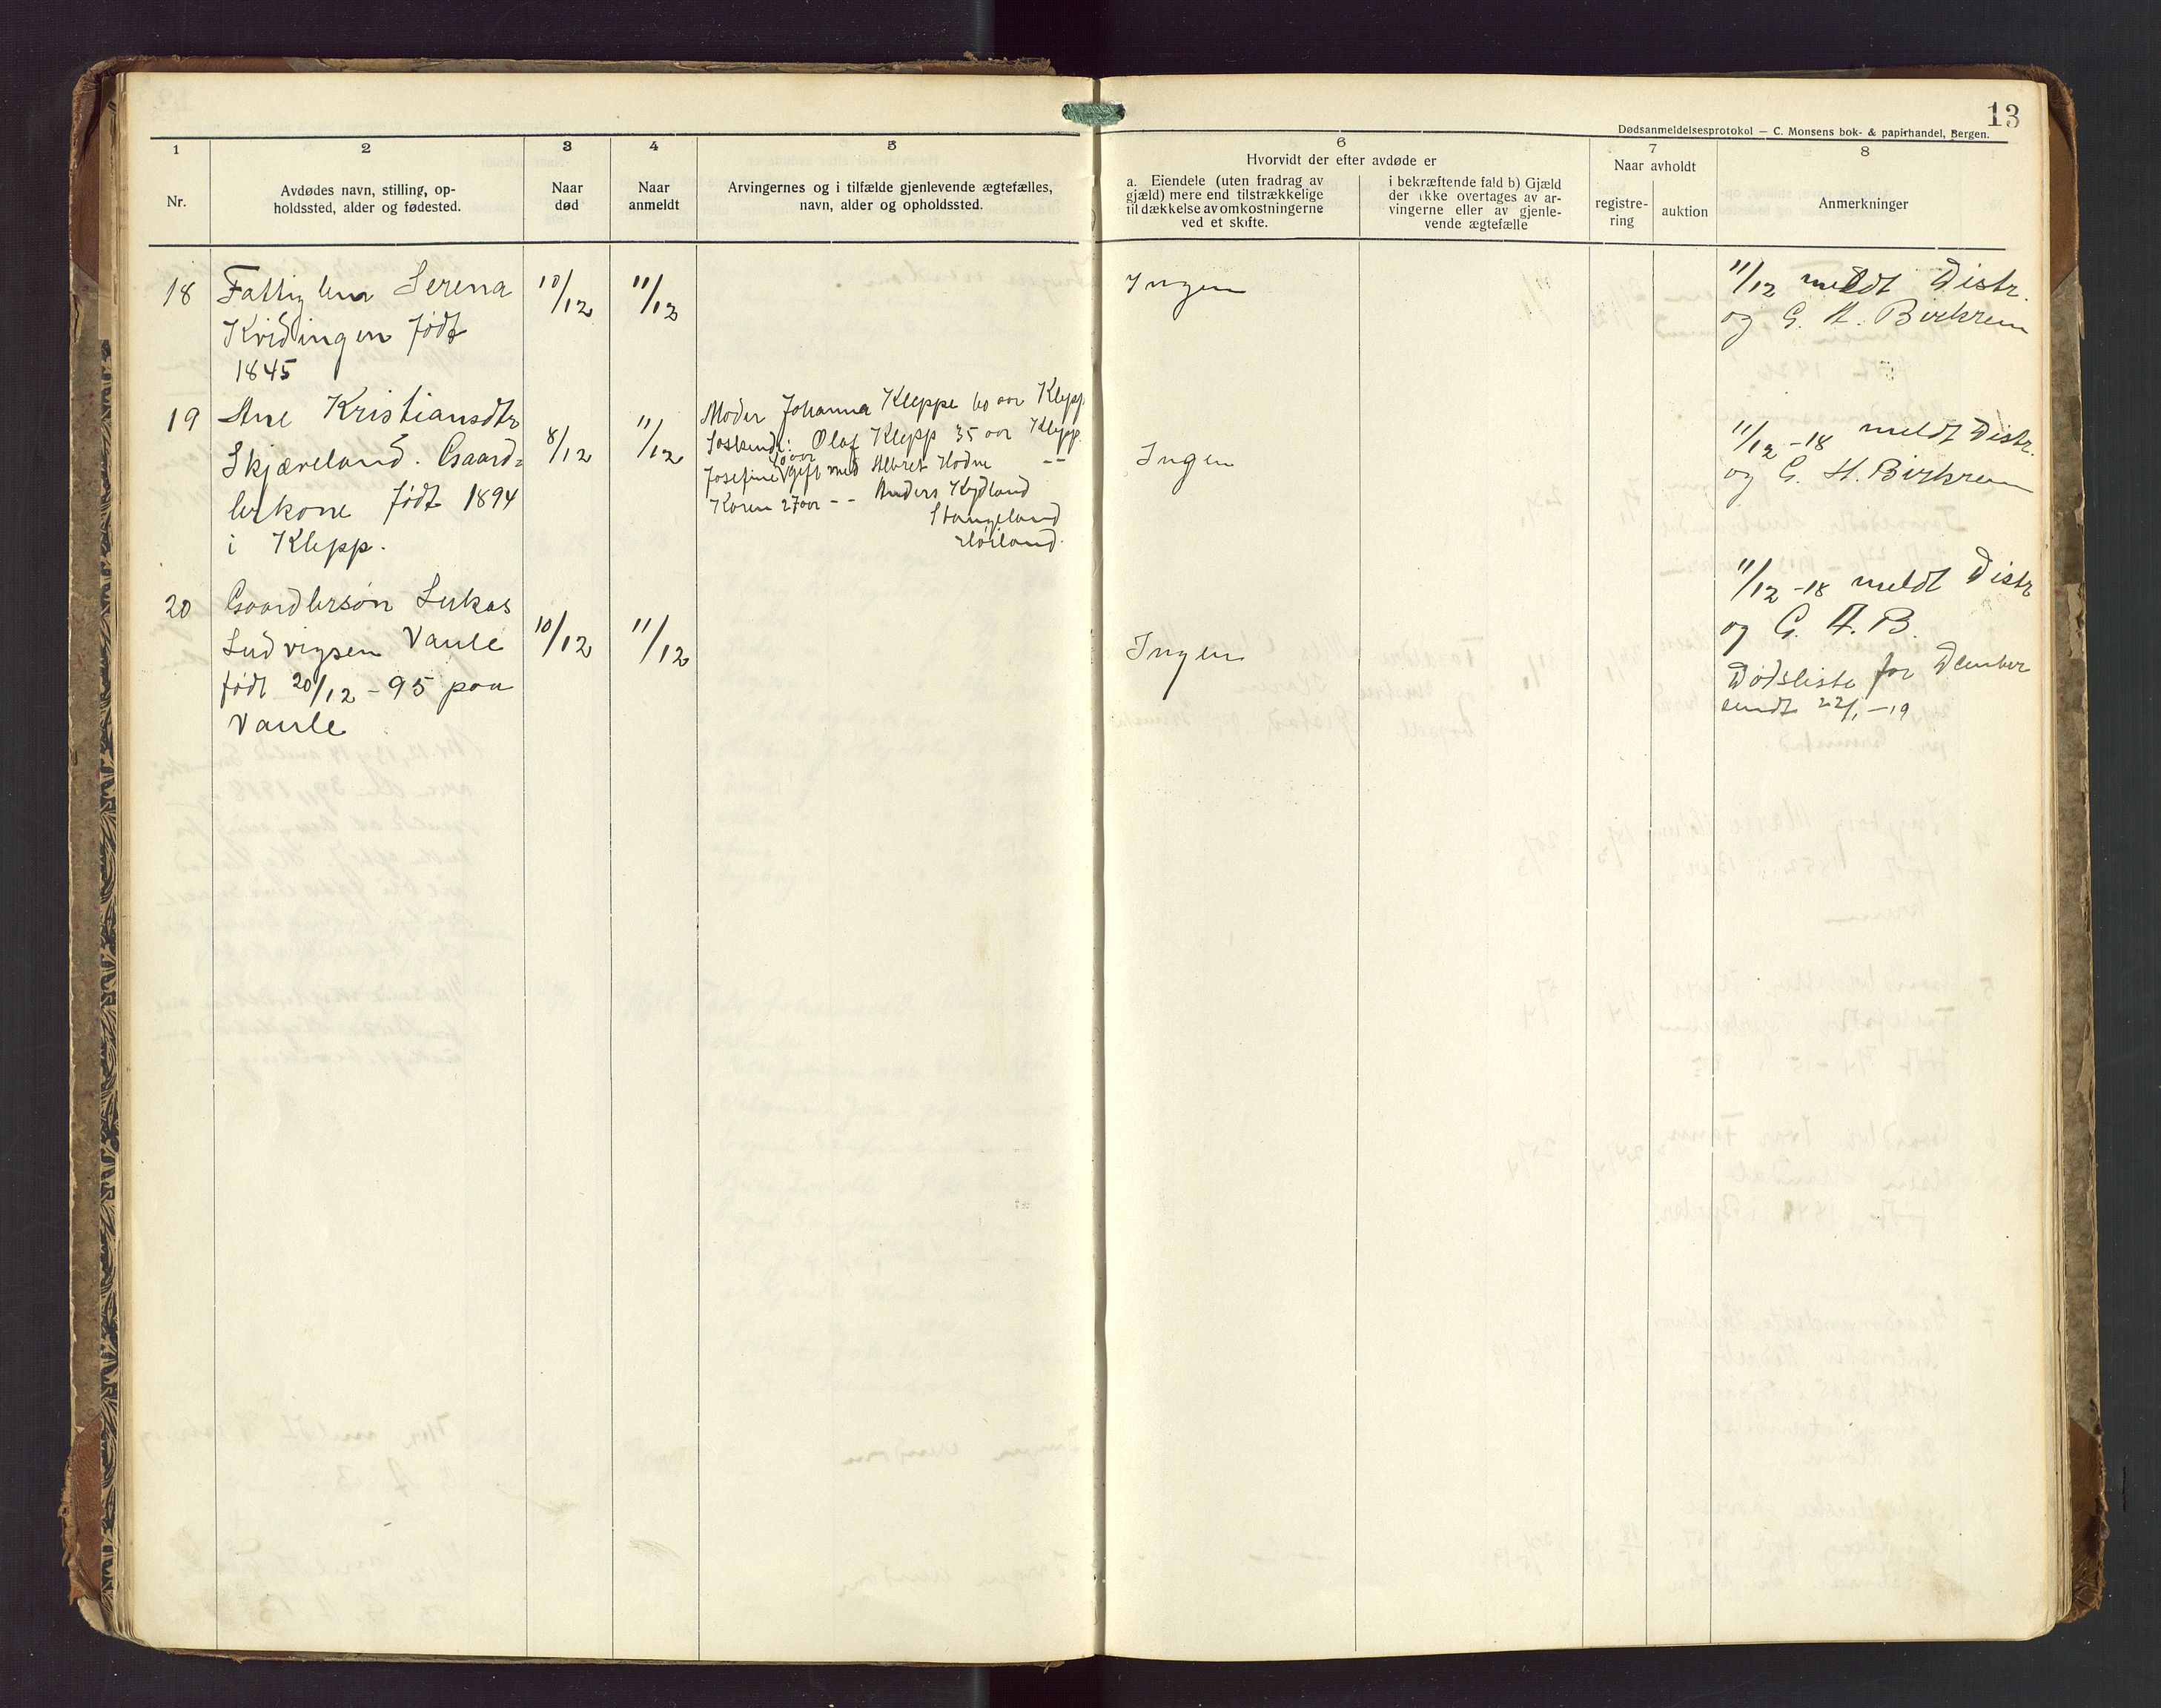 13
Dødsanmeldelsesprotokol — C. Monsens bok- & papirhandel, Bergen.
1
Nr.
2
Avdødes navn, stilling, op-
holdssted, alder og fødested.
3
Naar
død
4
Naar
anmeldt
5
Arvingernes og i tilfælde gjenlevende ægtefælles,
navn, alder og opholdssted.
6
Hvorvidt der efter avdøde er
a. Eiendele (uten fradrag av
gjæld) mere end tilstrækkelige
til dækkelse av omkostningerne
ved et skifte.
i bekræftende fald b) Gjæld
der ikke overtages av ar-
vingerne eller av gjenle-
vende ægtefælle
7
Naar avholdt
registre-
ring
auktion
8
Anmerkninger
18
Fattiglem Serena
Kvidingen født
1845
10/12
11/12
Ingen
11/12 meldt Distr.
og G. A. Birkrem
19
Ane Kristiansdtr
Skjæveland. Gaard-
brkone født 1894
i Klepp.
8/12
11/12
Moder Johanna Kleppe 60 aar Klepp
Søskende: Olaf Klepp 35 aar Klepp
Josefine gift med Albret Hodne -"-
Karen 27 aar -"- Anders Kydland
Stangeland
Høiland.
Ingen
11/12-18 meldt Distr.
og G. A. Birkrem
20
Gaardbrsøn Lukas
Ludvigsen Vaule
født 20/12-95 paa
Vaule
10/12
11/12
Ingen
11/12-18 meldt Distr
og G. A. B.
Dødsliste for Dcember
sendt 22/1-19